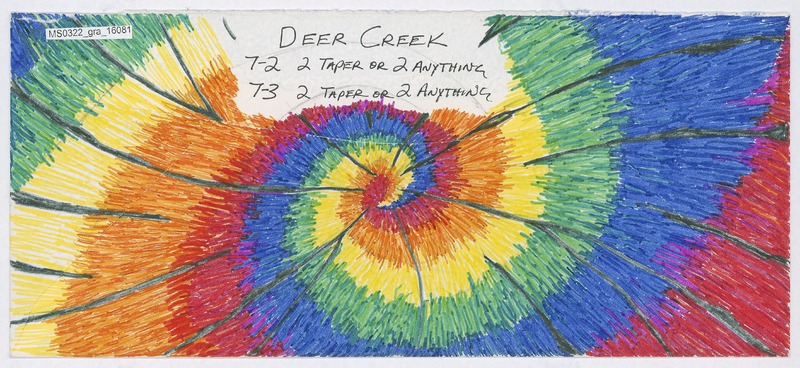 MS0322_gra_16081
DEER CREEK
7-2 2 TAPER OR 2 ANYTHING
7-3 2 TAPER OR 2 ANYTHING